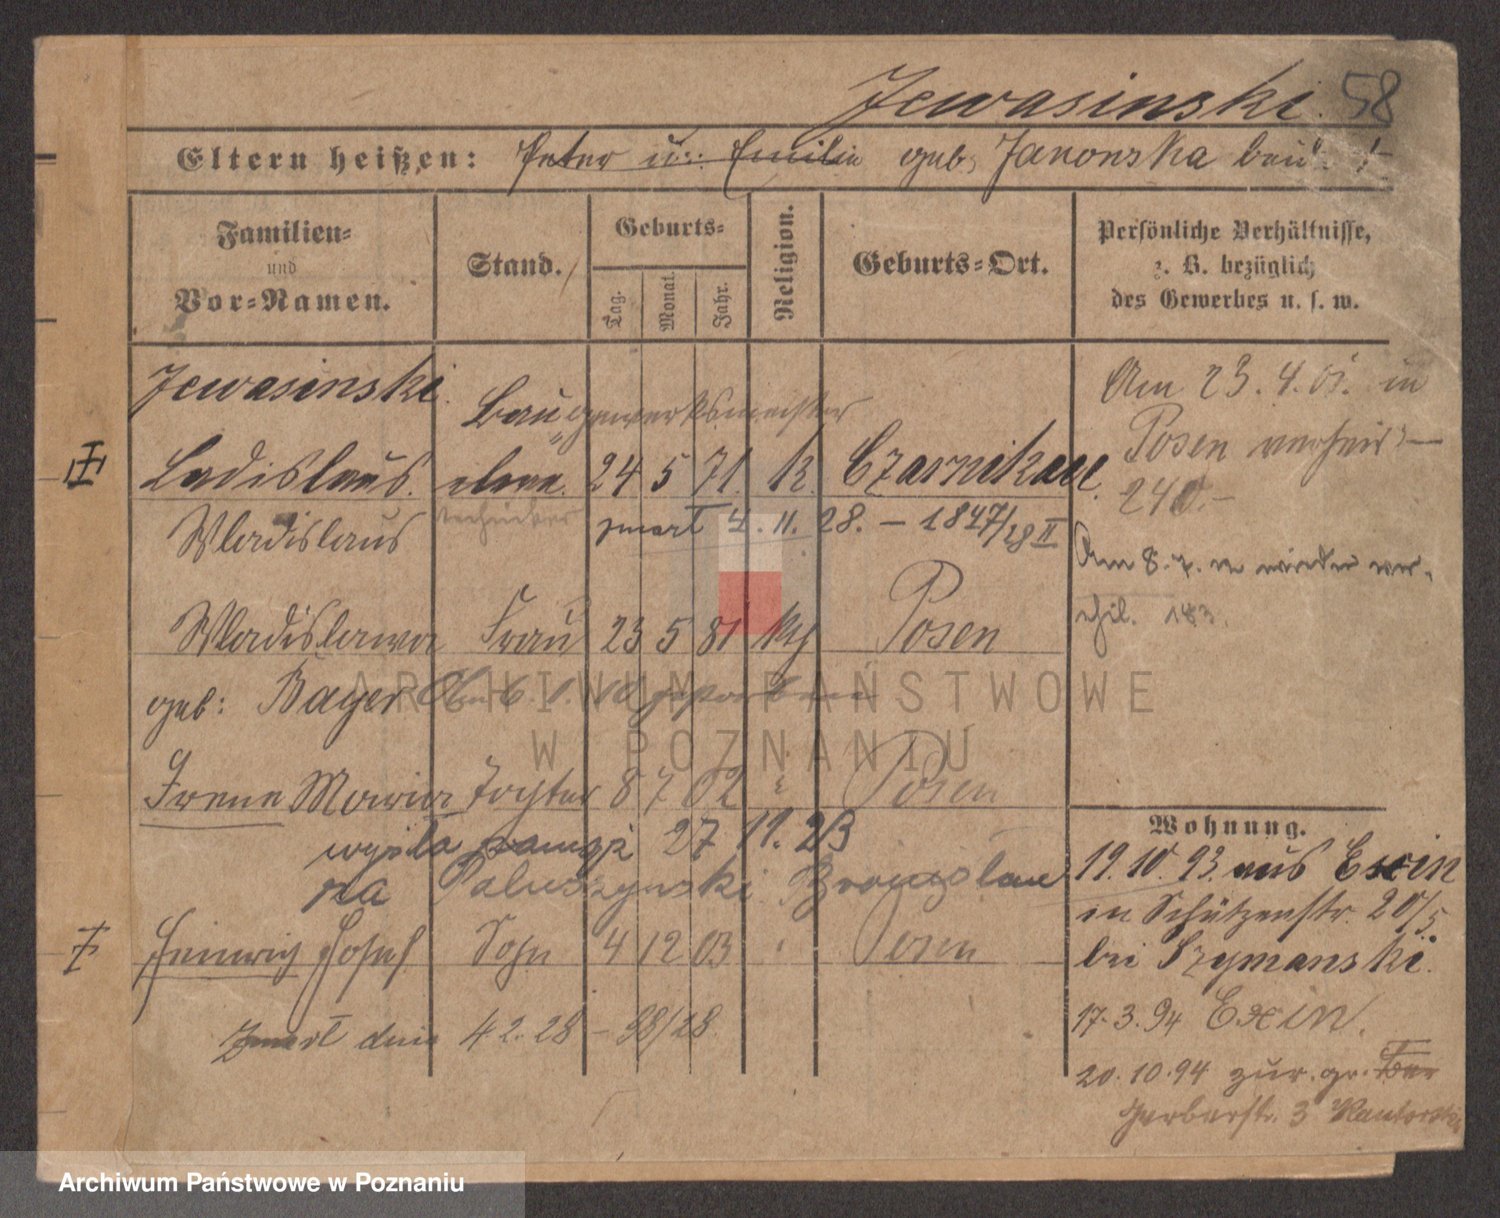 Jewasinski. 58
Eltern heißen: Peter u: Emilie geb. Janonska
Familien- und Vor-Namen.
Stand.
Geburts-
Tag. Monat. Jahr.
Religion.
Geburts-Ort.
Persönliche Verhältnisse,
z. B. bezüglich
des Gewerbes u. s. w.
Jewasinski.
Baugewerksmeister
Ladislaus. 24 5 71. K. Czarnikau.
Wladislaus techniker zmarł 4. 11. 28. – 1847/28 II
Wladislawa Frau 23 5 81 kth Posen
geb: Bayer 6. 1. 10 gestorben
Irene Maria Tochter 8 7 02 " Posen
wyszła zamąż 27 11. 23
za Paluszynski Bronisław
Heinrich Josef Sohn 4 12 03 " Posen
Zmarł dnia 4 2. 28 – 38/28
Am 23. 4. 01. in
Posen verheir. –
240. –
Am 8. 7. wieder ver-
ehil. 183.
Wohnung.
19. 10. 93. aus Exin
in Schützenstr. 20/5
bei Szymanski.
17. 3. 94 Exin.
20. 10. 94 zur. gr.
Gerberstr. 3
ARCHIWUM PAŃSTWOWE
W POZNANIU
Archiwum Państwowe w Poznaniu